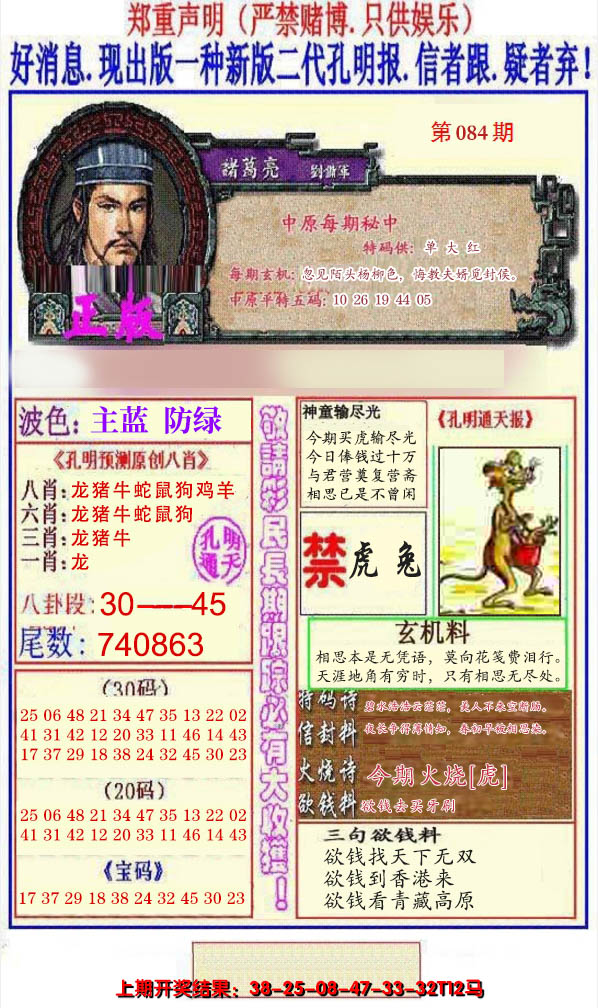 郑重声明（严禁赌博.只供娱乐）
好消息.现出版一种新版二代孔明报.信者跟.疑者弃!
第084期
諸葛亮 劉備軍
中原每期秘中
特码供：单 大 红
每期玄机：忽见陌头杨柳色，悔教夫婿觅封侯。
中原平特五码：10 26 19 44 05
正版
波色：主蓝 防绿
《孔明预测原创八肖》
八肖：龙猪牛蛇鼠狗鸡羊
六肖：龙猪牛蛇鼠狗
三肖：龙猪牛
一肖：龙
孔明
通天
八卦段：30——45
尾数：740863
（30码）
25 06 48 21 34 47 35 13 22 02
41 31 42 12 20 33 11 46 14 43
17 37 29 18 38 24 32 45 30 23
（20码）
25 06 48 21 34 47 35 13 22 02
41 31 42 12 20 33 11 46 14 43
《宝码》
17 37 29 18 38 24 32 45 30 23
敬請彩民長期跟踪必有大收獲！
神童输尽光
今期买虎输尽光
今日俸钱过十万
与君营奠复营斋
相思已是不曾闲
《孔明通天报》
禁 虎 兔
玄机料
相思本是无凭语，莫向花笺费泪行。
天涯地角有穷时，只有相思无尽处。
特码诗 碧水浩浩云茫茫，美人不来空断肠。
信封料 夜长争得薄情知，春初早被相思染。
火烧诗 今期火烧[虎]
欲钱料 欲钱去买牙刷
三句欲钱料
欲钱找天下无双
欲钱到香港来
欲钱看青藏高原
上期开奖结果：38-25-08-47-33-32T12马